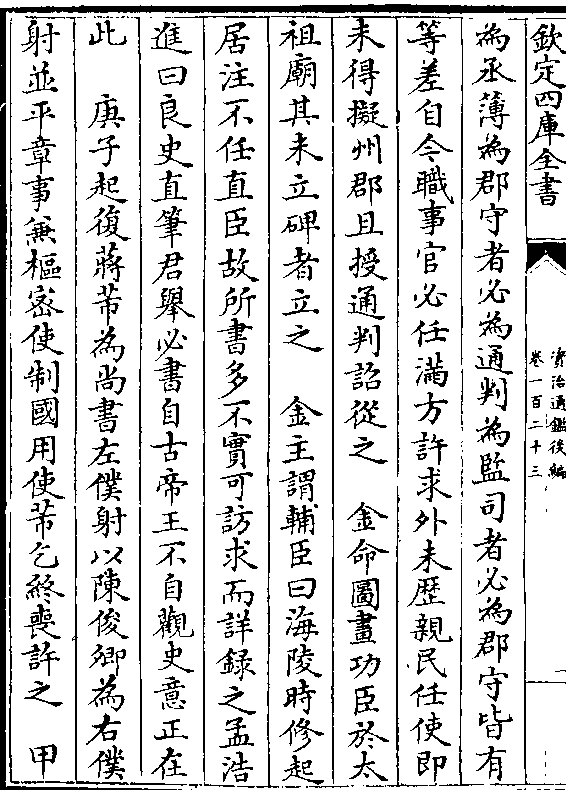 欽定四庫全書
資治通鑑後編
卷一百二十三
為丞簿為郡守者必為通判為監司者必為郡守皆有
等差自今職事官必任滿方許求外未歴親民任使即
未得擬州郡且授通判詔從之　金命圖畫功臣於太
祖廟其未立碑者立之　金主謂輔臣曰海陵時修起
居注不任直臣故所書多不實可訪求而詳録之孟浩
進曰良史直筆君舉必書自古帝王不自觀史意正在
此　庚子起復蔣芾為尚書左僕射以陳俊卿為右僕
射並平章事兼樞宻使制國用使芾乞終喪許之　甲